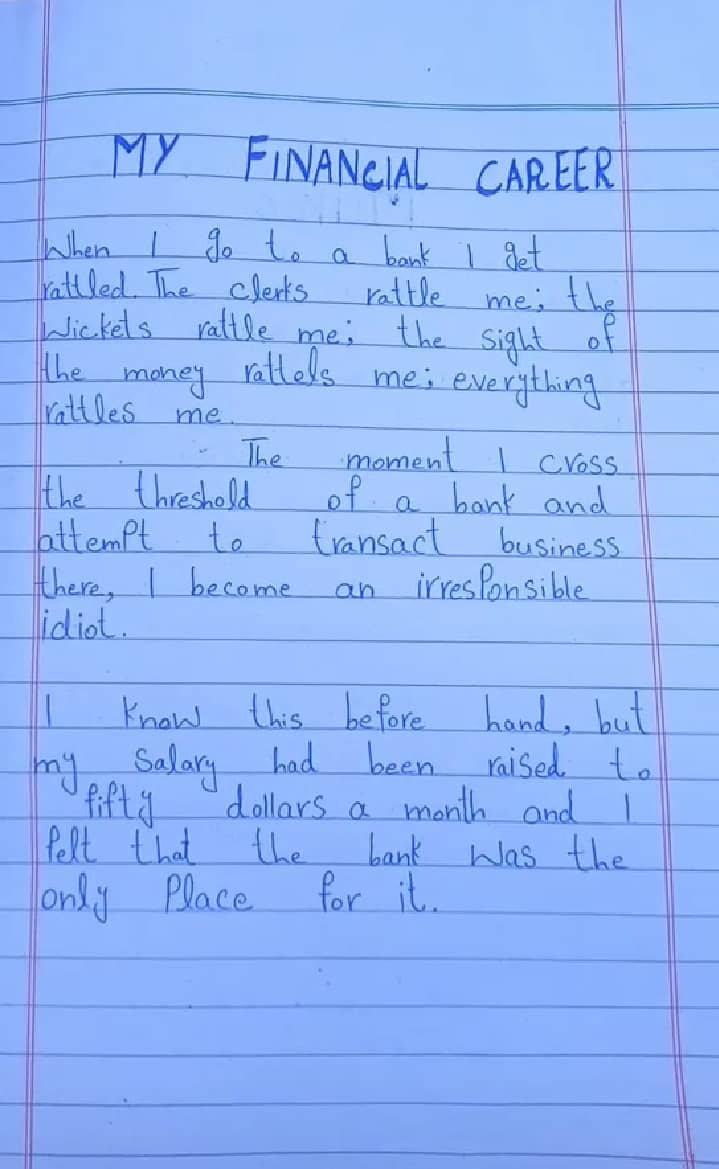 MY FINANCIAL CAREER
When I go to a bank I get
rattled. The clerks rattle me; the
Wickets rattle me; the sight of
the money rattels me; everything
rattles me.
The moment I cross
the threshold of a bank and
attempt to transact business
there, I become an irresponsible
idiot.
I know this before hand, but
my Salary had been raised to
fifty dollars a month and I
felt that the bank was the
only Place for it.